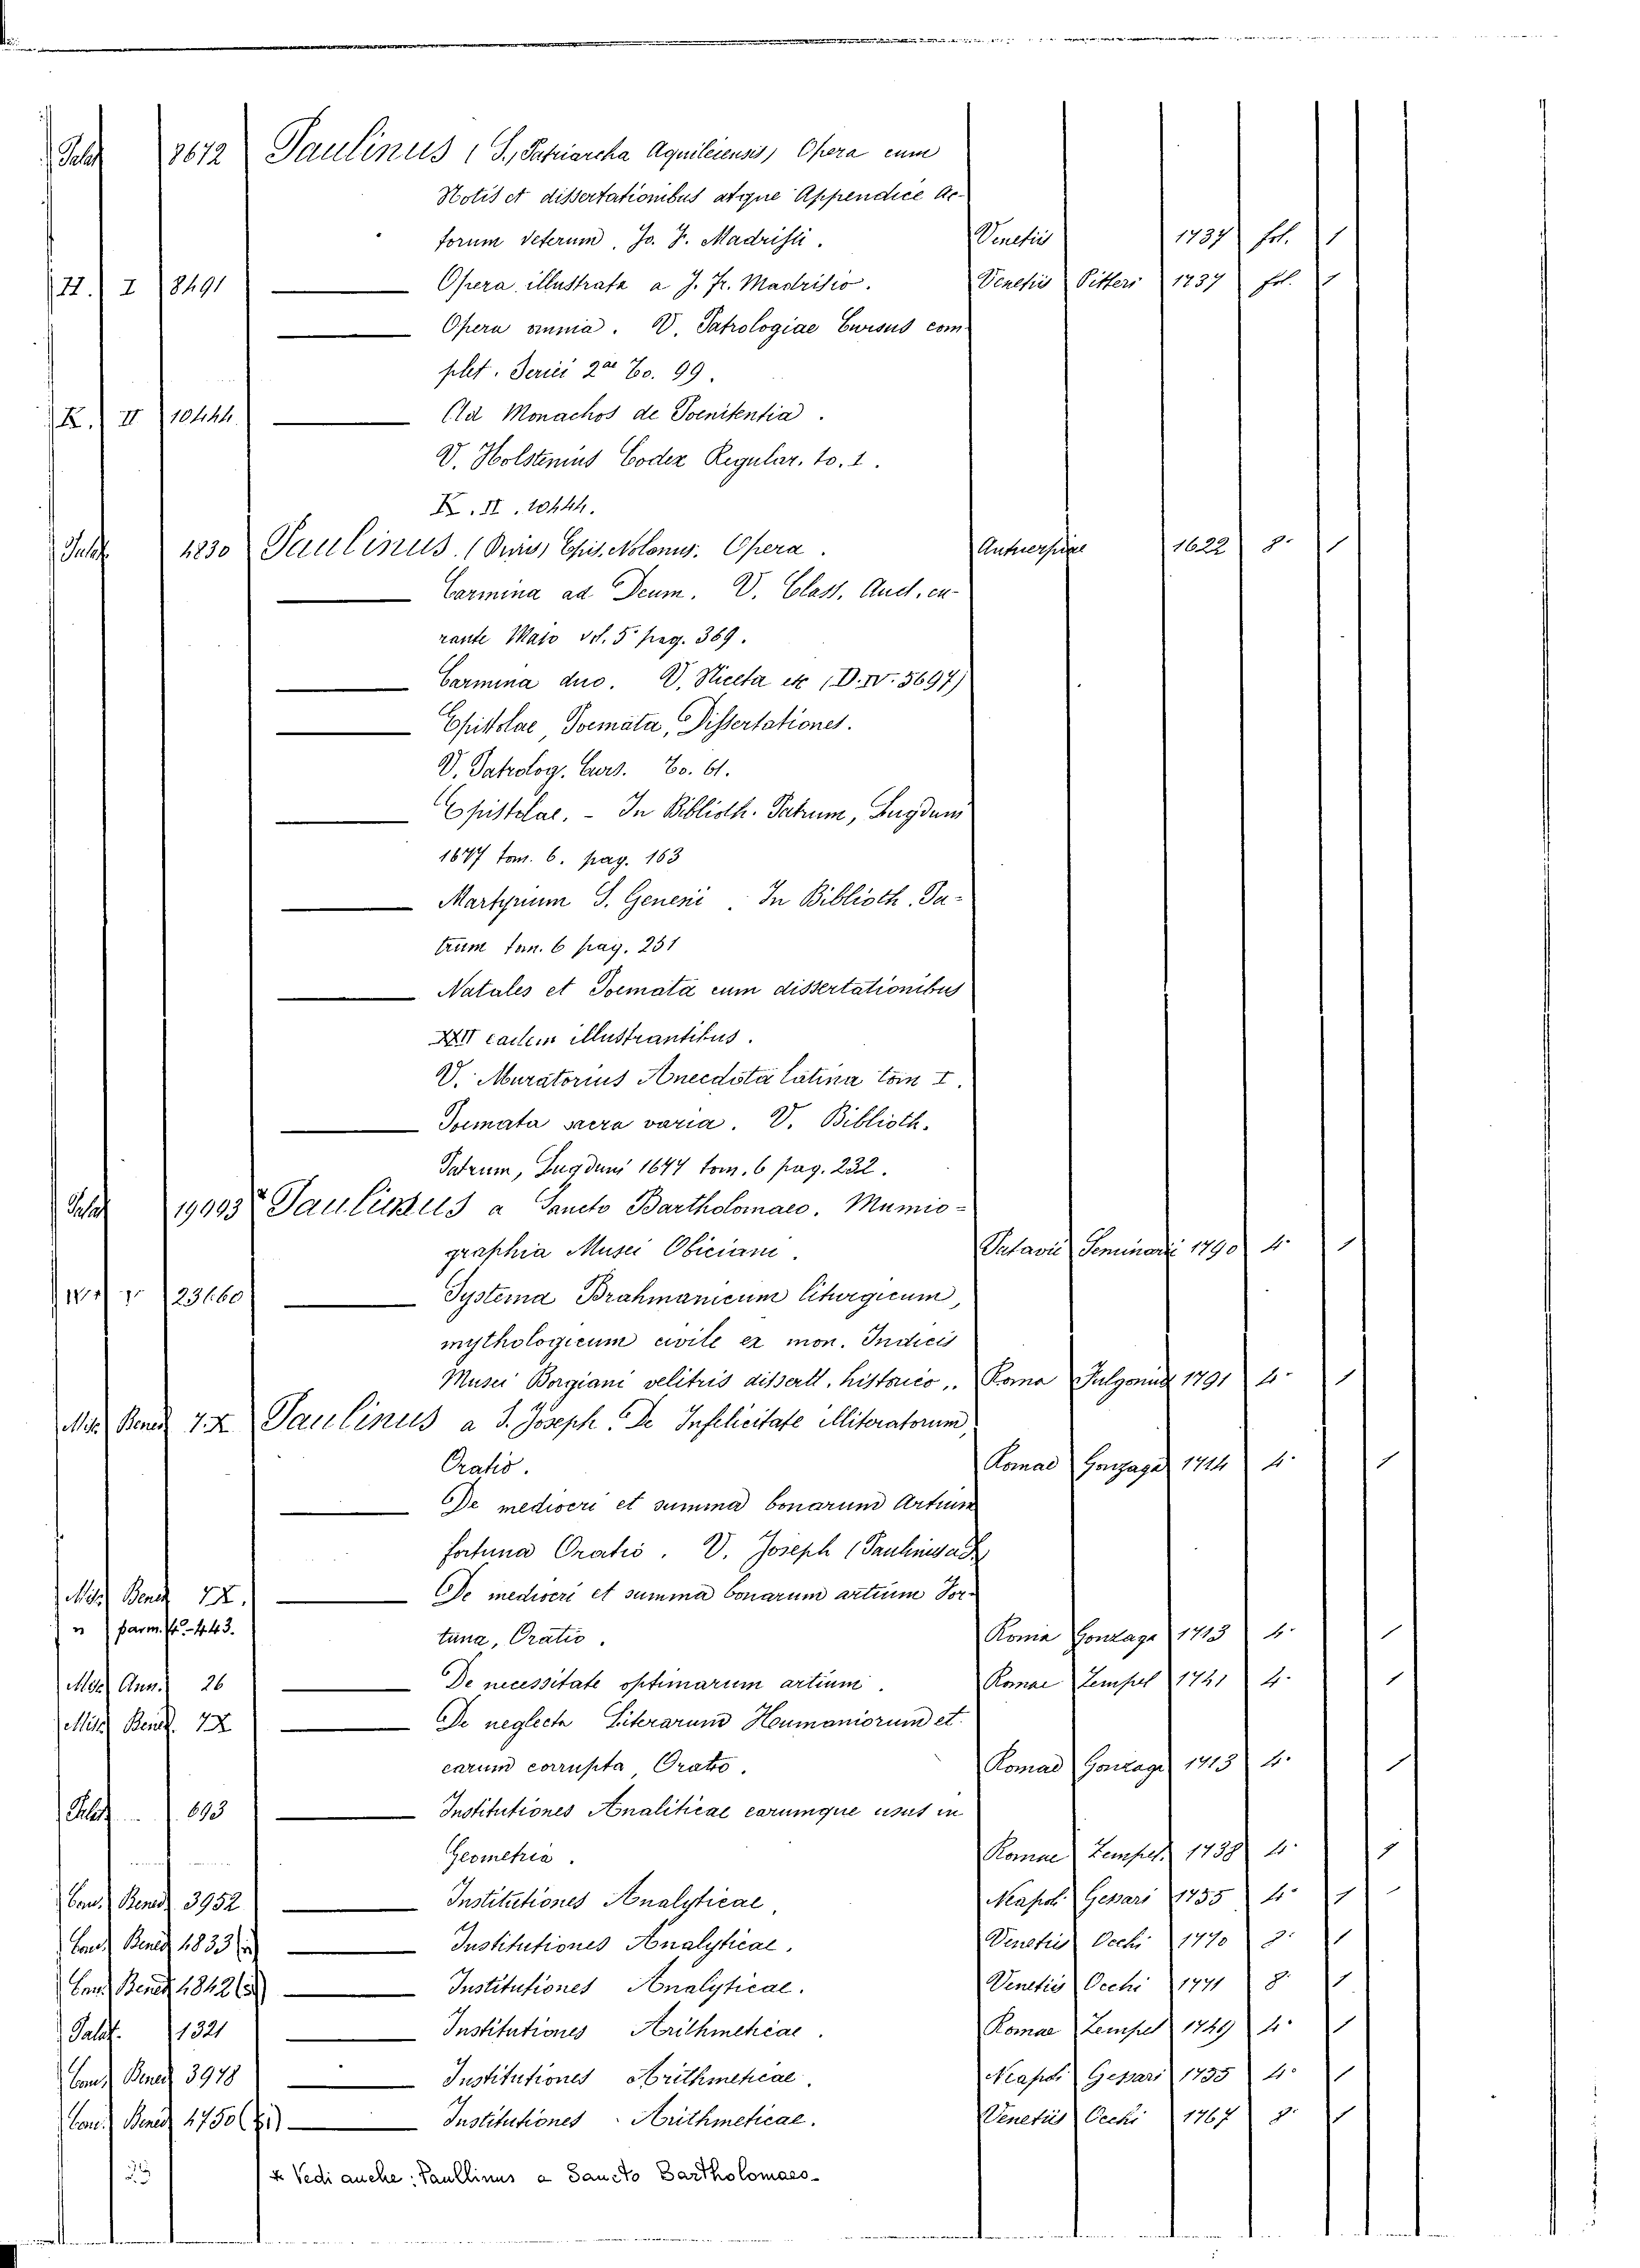 Palat 8672 Paulinus (S., Patriarcha Aquileiensis) Opera cum
Notis et dissertationibus atque Appendice Ac-
torum veterum. Jo. F. Madrisii. Venetiis 1737 fol. 1
H. I 8491 — Opera illustrata a J. Fr. Madrisio. Venetiis Pitteri 1737 fol. 1
— Opera omnia. V. Patrologiae Cursus com-
plet. Serici 2ae To. 99.
K. II 10444 — Ad Monachos de Poenitentia.
V. Holstenius Codex Regular. to. 1.
K. II. 10444.
Palat 4230 Paulinus. (Divus) Epis. Nolanus. Opera. Antuerpiae 1622 8° 1
— Carmina ad Deum. V. Class. Auct. cu-
rante Maio vol. 5° pag. 369.
— Carmina duo. V. Niceta etc (D. IV. 5697)
— Epistolae, Poemata, Dissertationes.
V. Patrolog. Curs. To. 61.
— Epistolae. - In Biblioth. Patrum, Lugduni
1677 tom. 6. pag. 163
— Martyrium S. Genesii. In Biblioth. Pa-
trum tom. 6 pag. 231
— Natales et Poemata cum dissertationibus
XXII eadem illustrantibus.
V. Muratorius Anecdota latina tom I.
— Poemata sacra varia. V. Biblioth.
Patrum, Lugduni 1677 tom. 6 pag. 232.
Palat 19993 x Paulinus a Sancto Bartholomaeo. Mumio-
graphia Musei Obiciani. Patavii Seminarii 1790 4° 1
23660 — Systema Brahmanicum liturgicum,
mythologicum civile ex mon. Indicis
Musei Borgiani velitris dissert. historico.. Roma Fulgonius 1791 4° 1
Misc. Bened. 72 Paulinus a S. Joseph. De Infelicitate illiteratorum,
Oratio. Romae Gonzaga 1714 4° 1
— De mediocri et summa bonarum Artium
fortuna Oratio. V. Joseph (Paulinus a S.
Misc. Bened. 72. — De mediocri et summa bonarum artium For-
" parm. 443. tuna, Oratio. Roma Gonzaga 1713 4° 1
Misc. Ann. 26 — De necessitate optimarum artium. Romae Zempel 1741 4° 1
Misc. Bened. 72 — De neglecta Literarum Humaniorum et
earum corrupta, Oratio. Romae Gonzaga 1713 4° 1
Palat 693 — Institutiones Analiticae earumque usus in
Geometria. Romae Zempel. 1738 4° 1
Com. Bened. 3952 — Institutiones Analyticae. Neapoli Gessari 1755 4° 1
Com. Bened. 4833 — Institutiones Analyticae. Venetiis Occhi 1770 8° 1
Com. Bened. 4842 — Institutiones Analyticae. Venetiis Occhi 1771 8° 1
Palat. 1321 — Institutiones Arithmeticae. Romae Zempel 1749 4° 1
Com. Bened. 3978 — Institutiones Arithmeticae. Neapoli Gessari 1755 4° 1
Com. Bened. 4750 — Institutiones Arithmeticae. Venetiis Occhi 1767 8° 1
x Vedi anche: Paullinus a Sancto Bartholomaeo-